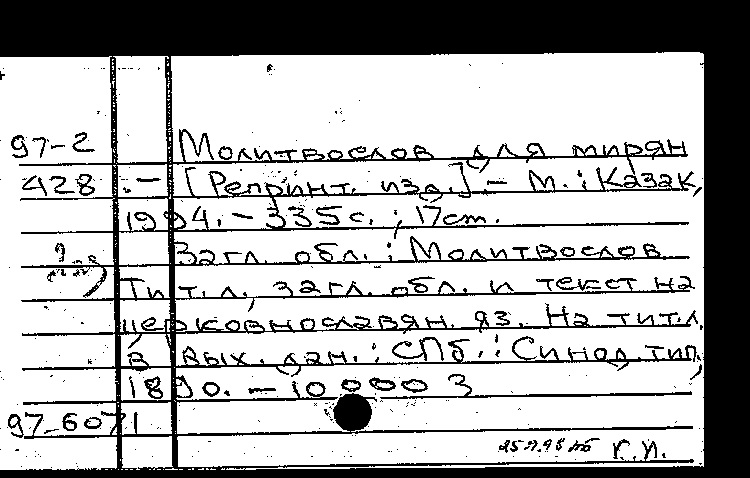 97-2 Молитвослов для мирян
428 .— [Репринт. изд.] — М.: Казак,
1994. — 335 с.; 17 см.
Загл. обл.: Молитвослов
Тит. л., загл. обл. и текст на
церковнославян. яз. На тит. л.
в вых. дан.: СПб.: Синод. тип.,
1890. — 10 000 э
97-6071
Г.И.